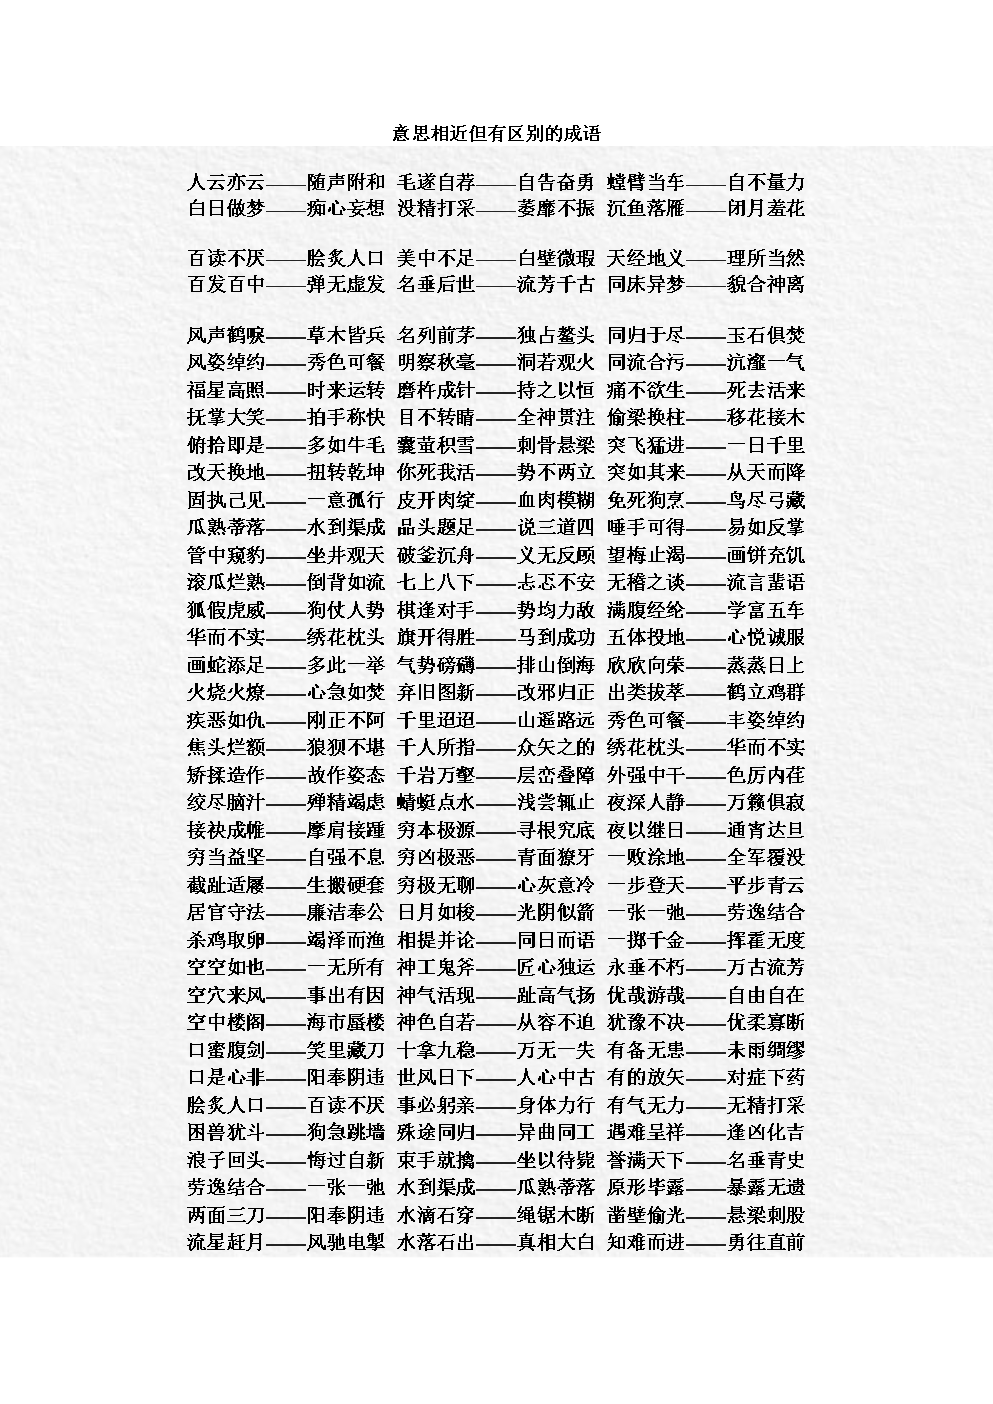 意思相近但有区别的成语
人云亦云——随声附和 毛遂自荐——自告奋勇 螳臂当车——自不量力
白日做梦——痴心妄想 没精打采——萎靡不振 沉鱼落雁——闭月羞花
百读不厌——脍炙人口 美中不足——白壁微瑕 天经地义——理所当然
百发百中——弹无虚发 名垂后世——流芳千古 同床异梦——貌合神离
风声鹤唳——草木皆兵 名列前茅——独占鳌头 同归于尽——玉石俱焚
风姿绰约——秀色可餐 明察秋毫——洞若观火 同流合污——沆瀣一气
福星高照——时来运转 磨杵成针——持之以恒 痛不欲生——死去活来
抚掌大笑——拍手称快 目不转睛——全神贯注 偷梁换柱——移花接木
俯拾即是——多如牛毛 囊萤积雪——刺骨悬梁 突飞猛进——一日千里
改天换地——扭转乾坤 你死我活——势不两立 突如其来——从天而降
固执己见——一意孤行 皮开肉绽——血肉模糊 兔死狗烹——鸟尽弓藏
瓜熟蒂落——水到渠成 品头题足——说三道四 唾手可得——易如反掌
管中窥豹——坐井观天 破釜沉舟——义无反顾 望梅止渴——画饼充饥
滚瓜烂熟——倒背如流 七上八下——忐忑不安 无稽之谈——流言蜚语
狐假虎威——狗仗人势 棋逢对手——势均力敌 满腹经纶——学富五车
华而不实——绣花枕头 旗开得胜——马到成功 五体投地——心悦诚服
画蛇添足——多此一举 气势磅礴——排山倒海 欣欣向荣——蒸蒸日上
火烧火燎——心急如焚 弃旧图新——改邪归正 出类拔萃——鹤立鸡群
疾恶如仇——刚正不阿 千里迢迢——山遥路远 秀色可餐——丰姿绰约
焦头烂额——狼狈不堪 千人所指——众矢之的 绣花枕头——华而不实
矫揉造作——故作姿态 千岩万壑——层峦叠障 外强中干——色厉内荏
绞尽脑汁——殚精竭虑 蜻蜓点水——浅尝辄止 夜深人静——万籁俱寂
接袂成帷——摩肩接踵 穷本极源——寻根究底 夜以继日——通宵达旦
穷当益坚——自强不息 穷凶极恶——青面獠牙 一败涂地——全军覆没
截趾适屦——生搬硬套 穷极无聊——心灰意冷 一步登天——平步青云
居官守法——廉洁奉公 日月如梭——光阴似箭 一张一弛——劳逸结合
杀鸡取卵——竭泽而渔 相提并论——同日而语 一掷千金——挥霍无度
空空如也——一无所有 神工鬼斧——匠心独运 永垂不朽——万古流芳
空穴来风——事出有因 神气活现——趾高气扬 优哉游哉——自由自在
空中楼阁——海市蜃楼 神色自若——从容不迫 犹豫不决——优柔寡断
口蜜腹剑——笑里藏刀 十拿九稳——万无一失 有备无患——未雨绸缪
口是心非——阳奉阴违 世风日下——人心中古 有的放矢——对症下药
脍炙人口——百读不厌 事必躬亲——身体力行 有气无力——无精打采
困兽犹斗——狗急跳墙 殊途同归——异曲同工 遇难呈祥——逢凶化吉
浪子回头——悔过自新 束手就擒——坐以待毙 誉满天下——名垂青史
劳逸结合——一张一弛 水到渠成——瓜熟蒂落 原形毕露——暴露无遗
两面三刀——阳奉阴违 水滴石穿——绳锯木断 凿壁偷光——悬梁刺股
流星赶月——风驰电掣 水落石出——真相大白 知难而进——勇往直前